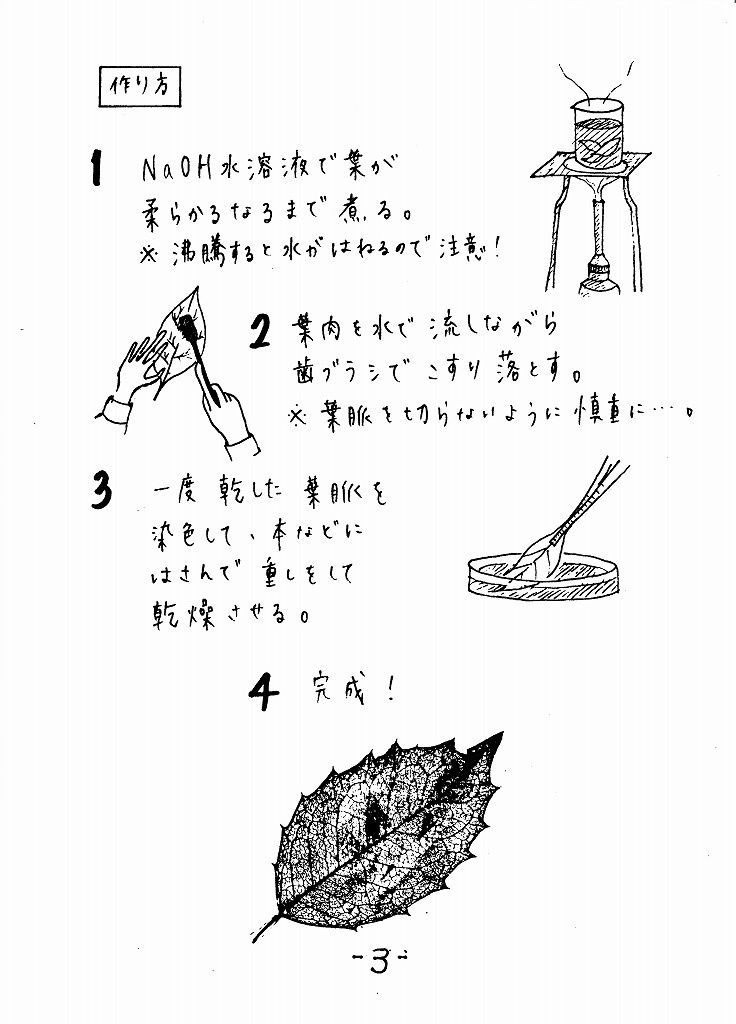 作り方
1 NaOH水溶液で葉が
柔らかるなるまで煮る。
※沸騰すると水がはねるので注意！
2 葉肉を水で流しながら
歯ブラシでこすり落とす。
※葉脈を切らないように慎重に…。
3 一度乾した葉脈を
染色して、本などに
はさんで重しをして
乾燥させる。
4 完成！
-3-